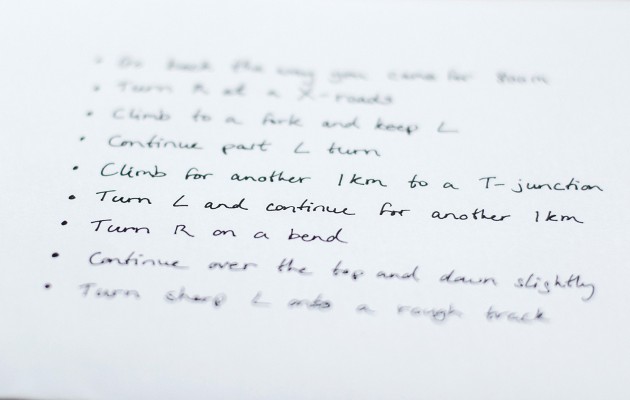 • Go back the way you came for 800m
• Turn R at a X-roads
• Climb to a fork and keep L
• Continue past L turn
• Climb for another 1km to a T-junction
• Turn L and continue for another 1km
• Turn R on a bend
• Continue over the top and down slightly
• Turn sharp L onto a rough track